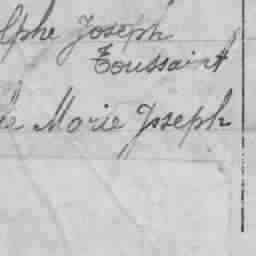 lphe Joseph
Toussaint
le Marie Joseph